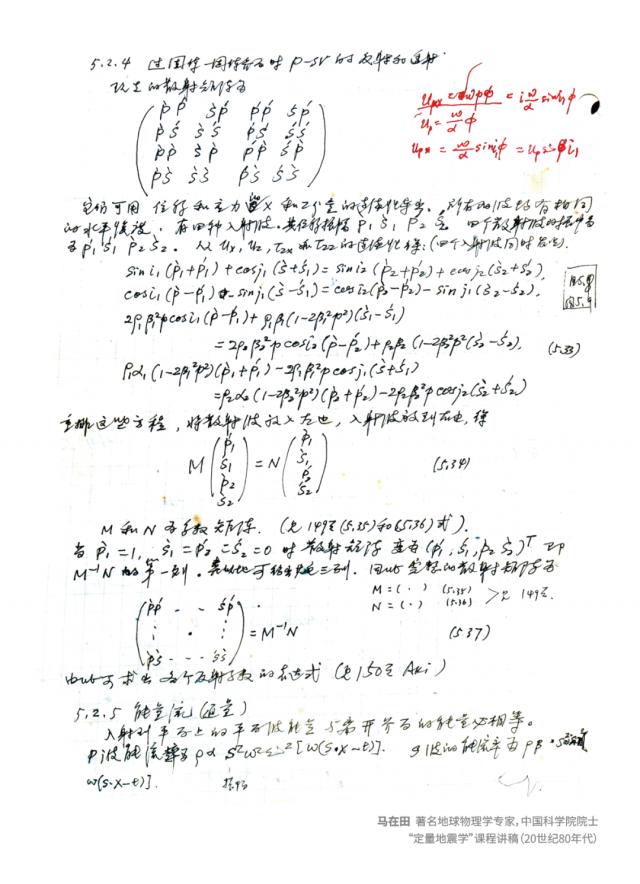 5.2.4 过固体—固体界面时 P-SV 的反射和透射
改正的散射矩阵为
P̀Ṕ S̀Ṕ ṔṔ ŚṔ
P̀Ś S̀Ś ṔŚ ŚŚ
P̀P̀ S̀P̀ ṔP̀ ŚP̀
P̀S̀ S̀S̀ ṔS̀ ŚS̀
= i ω/α sin i₁ φ
= ω/α φ
= ω/α sin i₁ φ = u_P sin i₁
它仍可用位移和应力
的水平慢度。有四种入射波。其位移振幅 P̀₁ S̀₁ Ṕ₂ Ś₂ 四个散射波的振幅为
Ṕ₁ Ś₁ P̀₂ S̀₂。从 Ux, Uz, τzx 和 τzz 的连续性得:(四个入射波同时存在).
sin i₁ (P̀₁+Ṕ₁) + cos j₁ (S̀₁+Ś₁) = sin i₂ (P̀₂+Ṕ₂) + cos j₂ (S̀₂+Ś₂)
cos i₁ (P̀₁−Ṕ₁) − sin j₁ (S̀₁−Ś₁) = cos i₂ (P̀₂−Ṕ₂) − sin j₂ (S̀₂−Ś₂).
2ρ₁β₁²p cos i₁ (P̀₁−Ṕ₁) + ρ₁β₁(1−2β₁²p²)(S̀₁−Ś₁)
= 2ρ₂β₂²p cos i₂ (P̀₂−Ṕ₂) + ρ₂β₂ (1−2β₂²p²)(S̀₂−Ś₂). (5.33)
ρ₁α₁(1−2β₁²p²)(P̀₁+Ṕ₁) − 2ρ₁β₁²p cos j₁ (S̀₁+Ś₁)
= ρ₂α₂(1−2β₂²p²)(P̀₂+Ṕ₂) − 2ρ₂β₂²p cos j₂ (S̀₂+Ś₂)
重排这些方程,将散射波放入左边,入射波放到右边,得
M (Ṕ₁ Ś₁ P̀₂ S̀₂) = N (P̀₁ S̀₁ Ṕ₂ Ś₂) (5.34)
M 和 N 为系数矩阵. (见 149页(5.35)和(5.36)式).
当 P̀₁=1, S̀₁=Ṕ₂=Ś₂=0 时散射矩阵变为 (Ṕ₁, Ś₁, P̀₂ S̀₂)ᵀ 即
M⁻¹N 的第一列. 类似地可 三列. 因此完整的散射矩阵为
M=(·) (5.35)
N=(·) (5.36) >见 149页.
(P̀Ṕ · · ŚṔ
⋮ · ⋮
P̀S̀ · · · ŚS̀) = M⁻¹N (5.37)
由此可求出各个反射系数的表达式 (见150页 Aki)
5.2.5 能量流(通量)
入射到平面上的平面波能量与离开界面的能量必相等。
P波能流率为 ρα [ω(S·X−t)]. S波的能流率为 ρβ
ω(S·X−t)].
马在田 著名地球物理学专家,中国科学院院士
“定量地震学”课程讲稿(20世纪80年代)